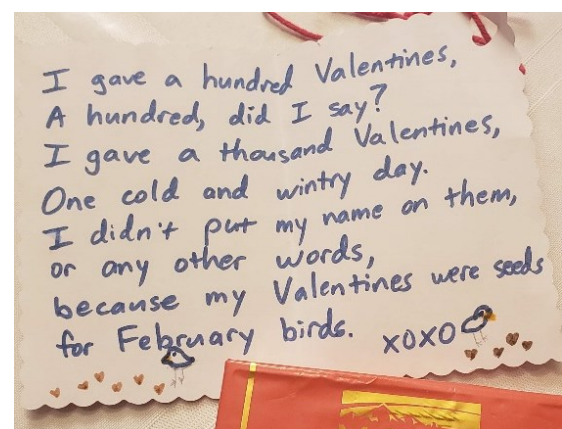 I gave a hundred Valentines,
A hundred, did I say?
I gave a thousand Valentines,
One cold and wintry day.
I didn't put my name on them,
or any other words,
because my Valentines were seeds
for February birds. xoxo